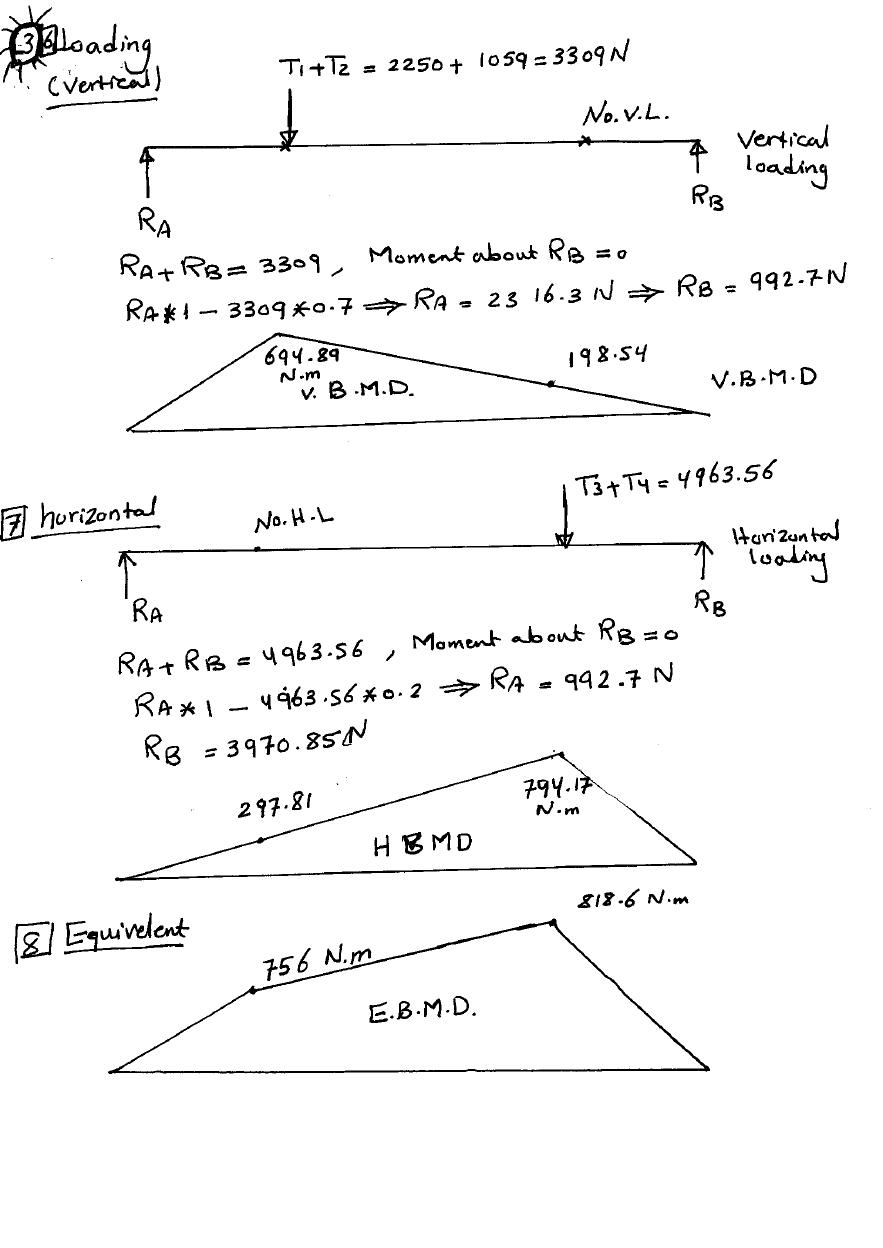 3 6 Loading
(Vertical)
T1+T2 = 2250 + 1059 = 3309 N
No. V.L.
Vertical
loading
RA
RB
RA + RB = 3309 , Moment about RB = 0
RA * 1 - 3309 * 0.7 ⟹ RA = 2316.3 N ⟹ RB = 992.7 N
694.89
N.m
198.54
V. B.M.D.
V.B.M.D
7 hurizontal
No. H.L
T3+T4 = 4963.56
Horizontal
loading
RA
RB
RA + RB = 4963.56 , Moment about RB = 0
RA * 1 - 4963.56 * 0.2 ⟹ RA = 992.7 N
RB = 3970.85 N
297.81
794.17
N.m
H B M D
8 Equivelent
818.6 N.m
756 N.m
E.B.M.D.